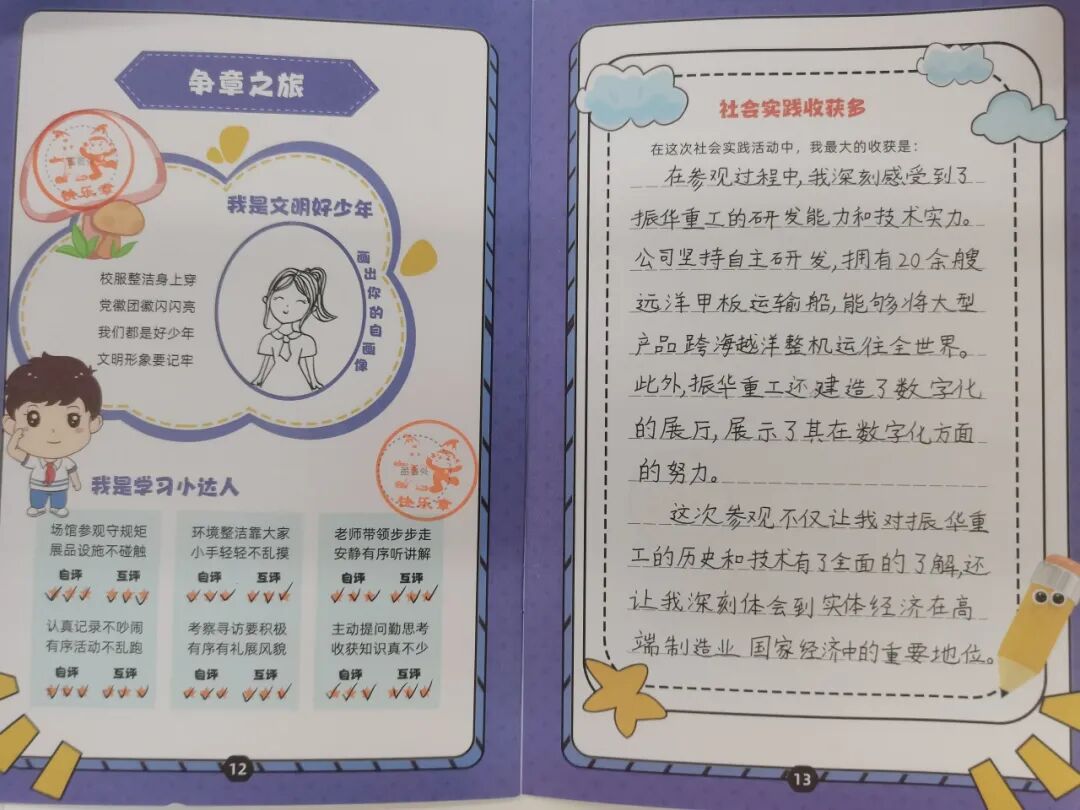 争章之旅
我是文明好少年
画出你的自画像
校服整洁身上穿
党徽团徽闪闪亮
我们都是好少年
文明形象要记牢
快乐章
快乐章
我是学习小达人
场馆参观守规矩
展品设施不碰触
自评 互评
环境整洁靠大家
小手轻轻不乱摸
自评 互评
老师带领步步走
安静有序听讲解
自评 互评
认真记录不吵闹
有序活动不乱跑
自评 互评
考察寻访要积极
有序有礼展风貌
自评 互评
主动提问勤思考
收获知识真不少
自评 互评
12
社会实践收获多
在这次社会实践活动中，我最大的收获是：
在参观过程中,我深刻感受到了
振华重工的研发能力和技术实力。
公司坚持自主研发,拥有20余艘
远洋甲板运输船,能够将大型
产品跨海越洋整机运往全世界。
此外,振华重工还建造了数字化
的展厅,展示了其在数字化方面
的努力。
这次参观不仅让我对振华重
工的历史和技术有了全面的了解,还
让我深刻体会到实体经济在高
端制造业国家经济中的重要地位。
13